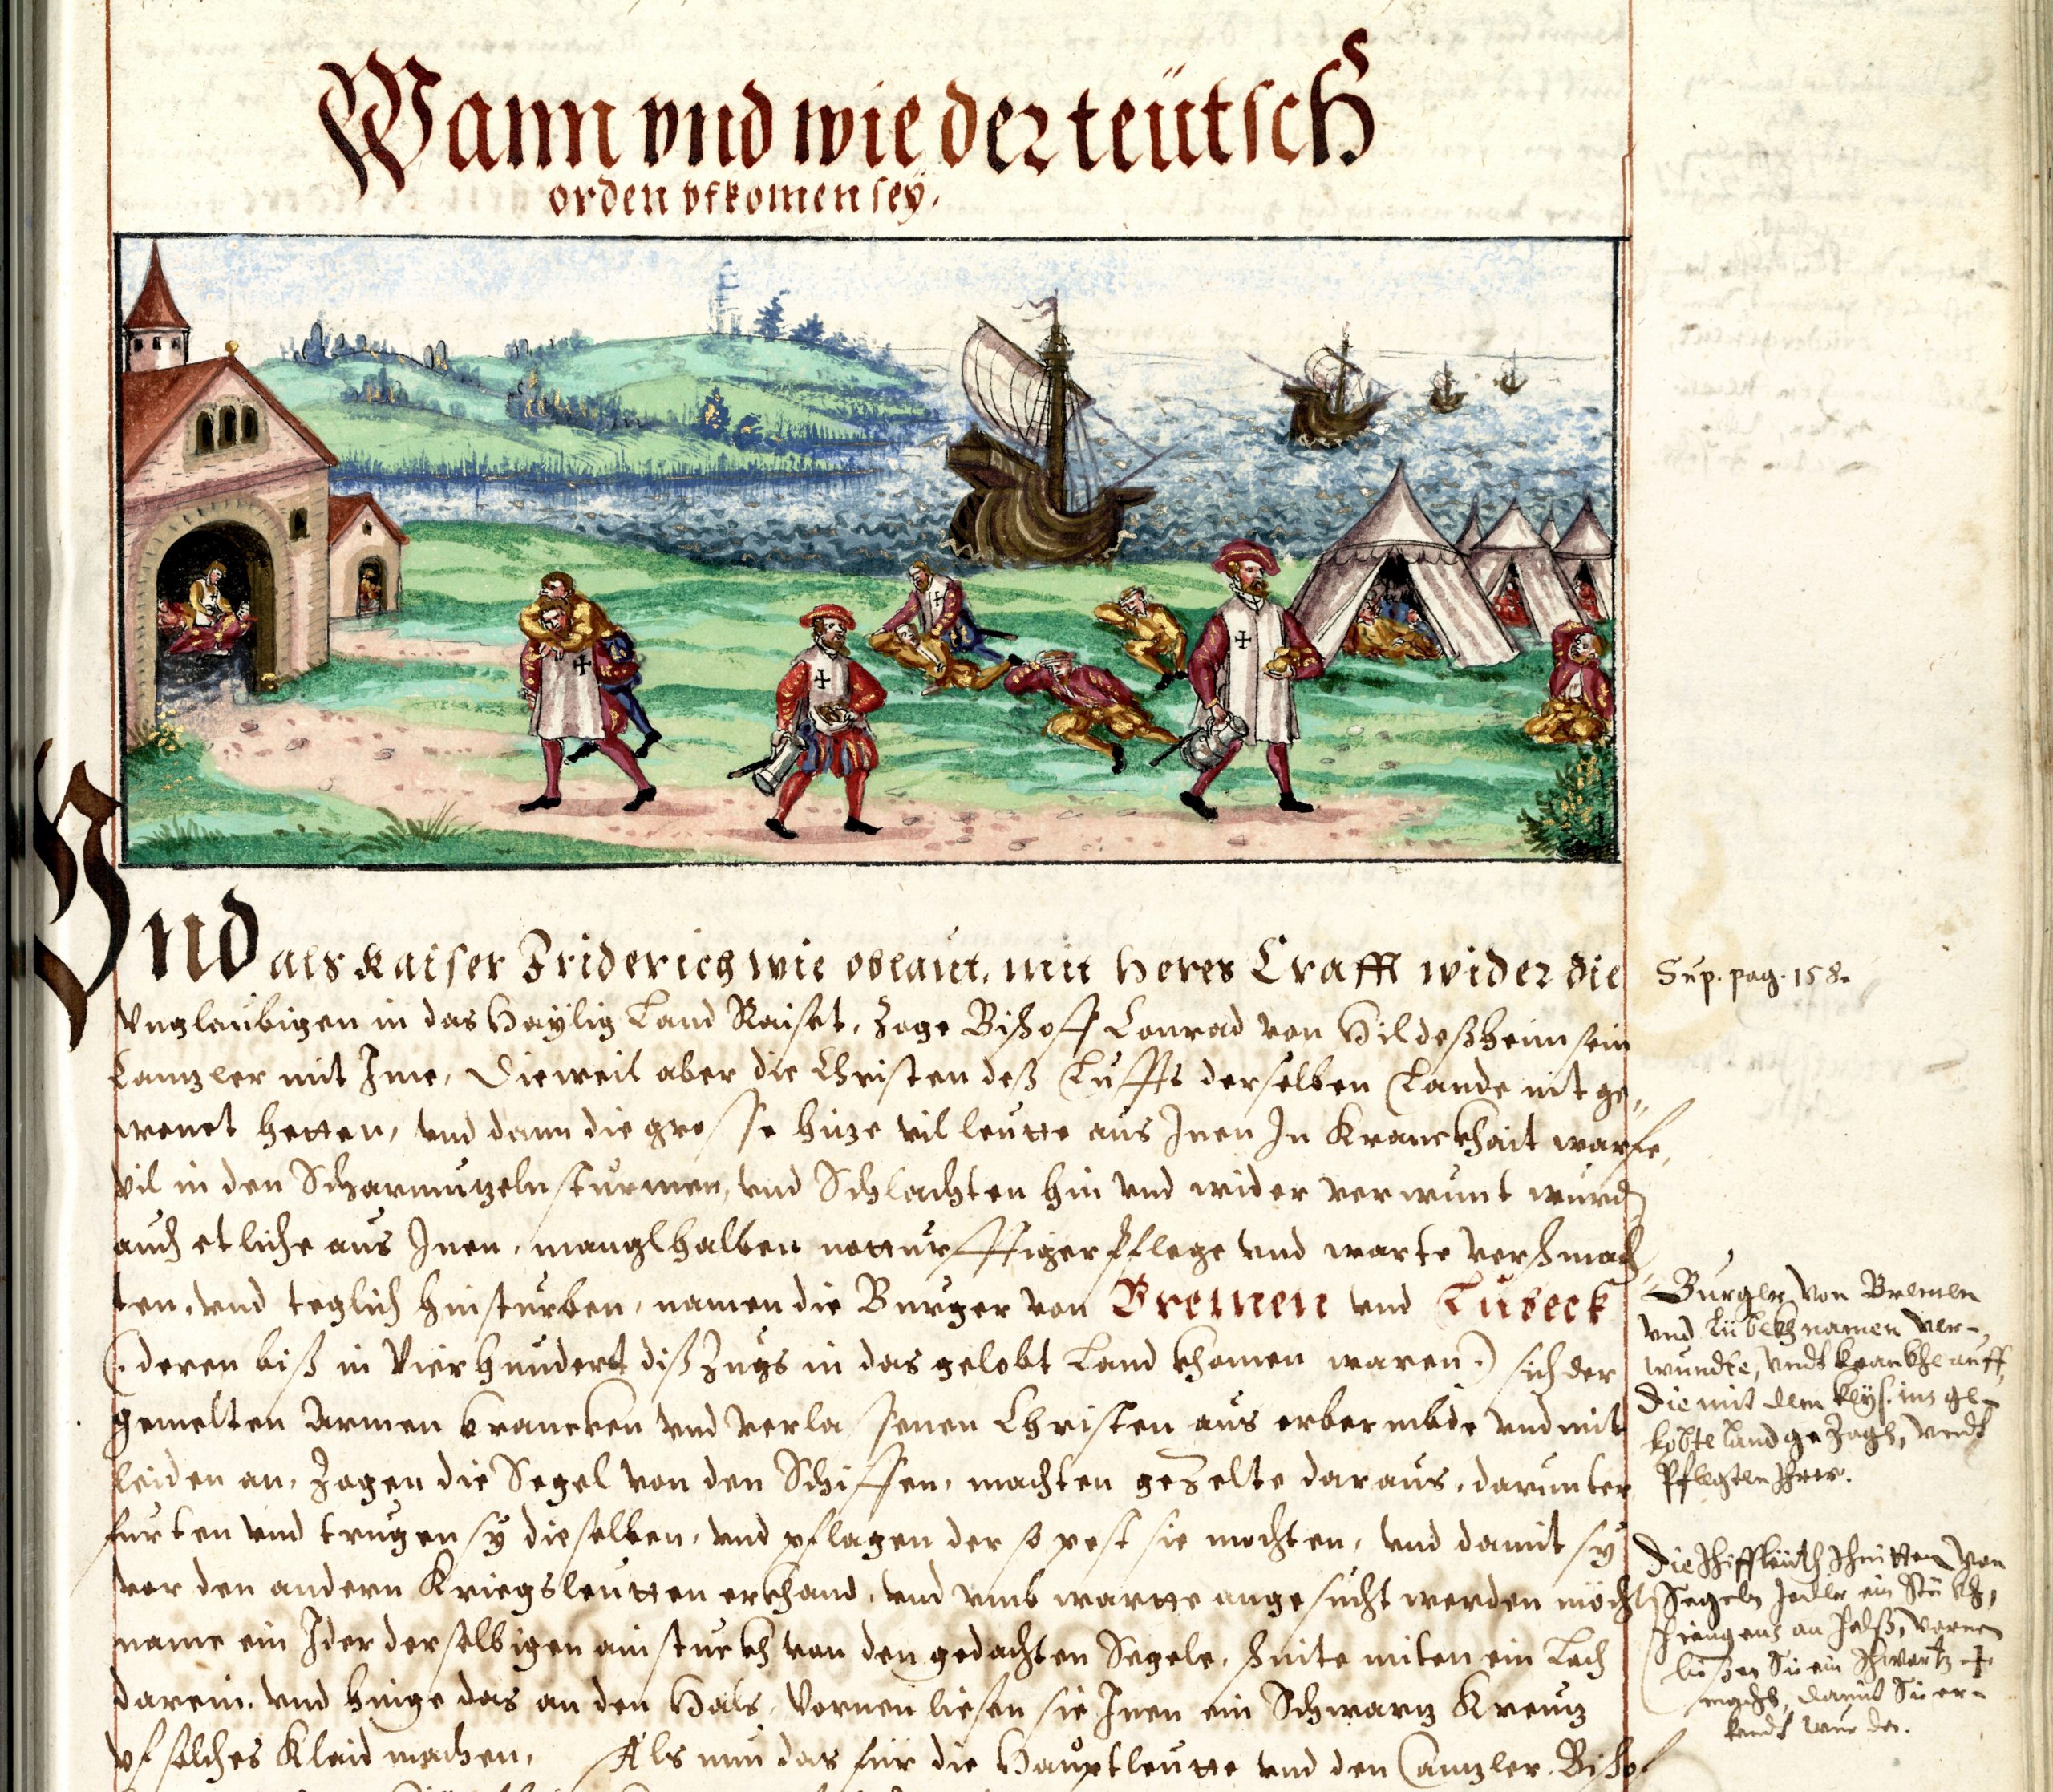 Wann vnd wie der teütsch
orden vfkomen seÿ.
Vnd als Kaiser Friderich wie oblaut, mit heres Crafft wider die
Vnglaubigen in das Haÿlig Land Raiset, zoge Bischoff Conrad von Hildeßheim sein
Canzler mit Ime, Dieweil aber die Christen deß Luffts derselben Lande nit ge„
wonet hetten, vnd dann die grosse hize vil leutte aus Inen In Kranckhait warfe,
vil in den Scharmuzeln sturmen, vnd Schlachten hin vnd wider verwunt wurd
auch etliche aus Inen, manglhalben notturfftiger Pflege vnd warte verschmach
ten, vnd teglich hinsturben, namen die Burger von Bremen vnd Lubeck
(: deren biß in Vierhundert diß Zugs in das gelobt Land khomen waren :) sich der
gemelten Armen krancken vnd verlassenen Christen aus erbermbde vnd mit
leiden an, zogen die Segel von den Schiffen, machten gezelte daraus, darunter
furten vnd trugen sÿ dieselben, vnd pflagen der so pest sie mochten, vnd damit sÿ
vor den andern Kriegsleutten erkhand, vnd vmb wartte angesucht werden möcht
name ein Jder derselbigen ain stuckh von den gedachten Segele, schnite miten ein Loch
darein, vnd hinge das an den Hals, Vornen liesen sie Inen ein Schwarz Kreuz
vf solches Klaid machen, Als nun das für die Hauptleutte vnd den Canzler Bischof
Sup. pag. 158.
Burger von Bremen
vnd Lübekh namen ver-
wundte, vndt krankhe auff,
die mit dem keÿs. ins ge-
lobte land gezogh, vndt
Pflegten Ihrer.
Die Schiffleüth schnitten von
Segeln Jeder ein Stükh,
hiengens an Halß, vornen
ließen Sie ein Schwartz +
machh, damit Sie er-
kendt wurden.